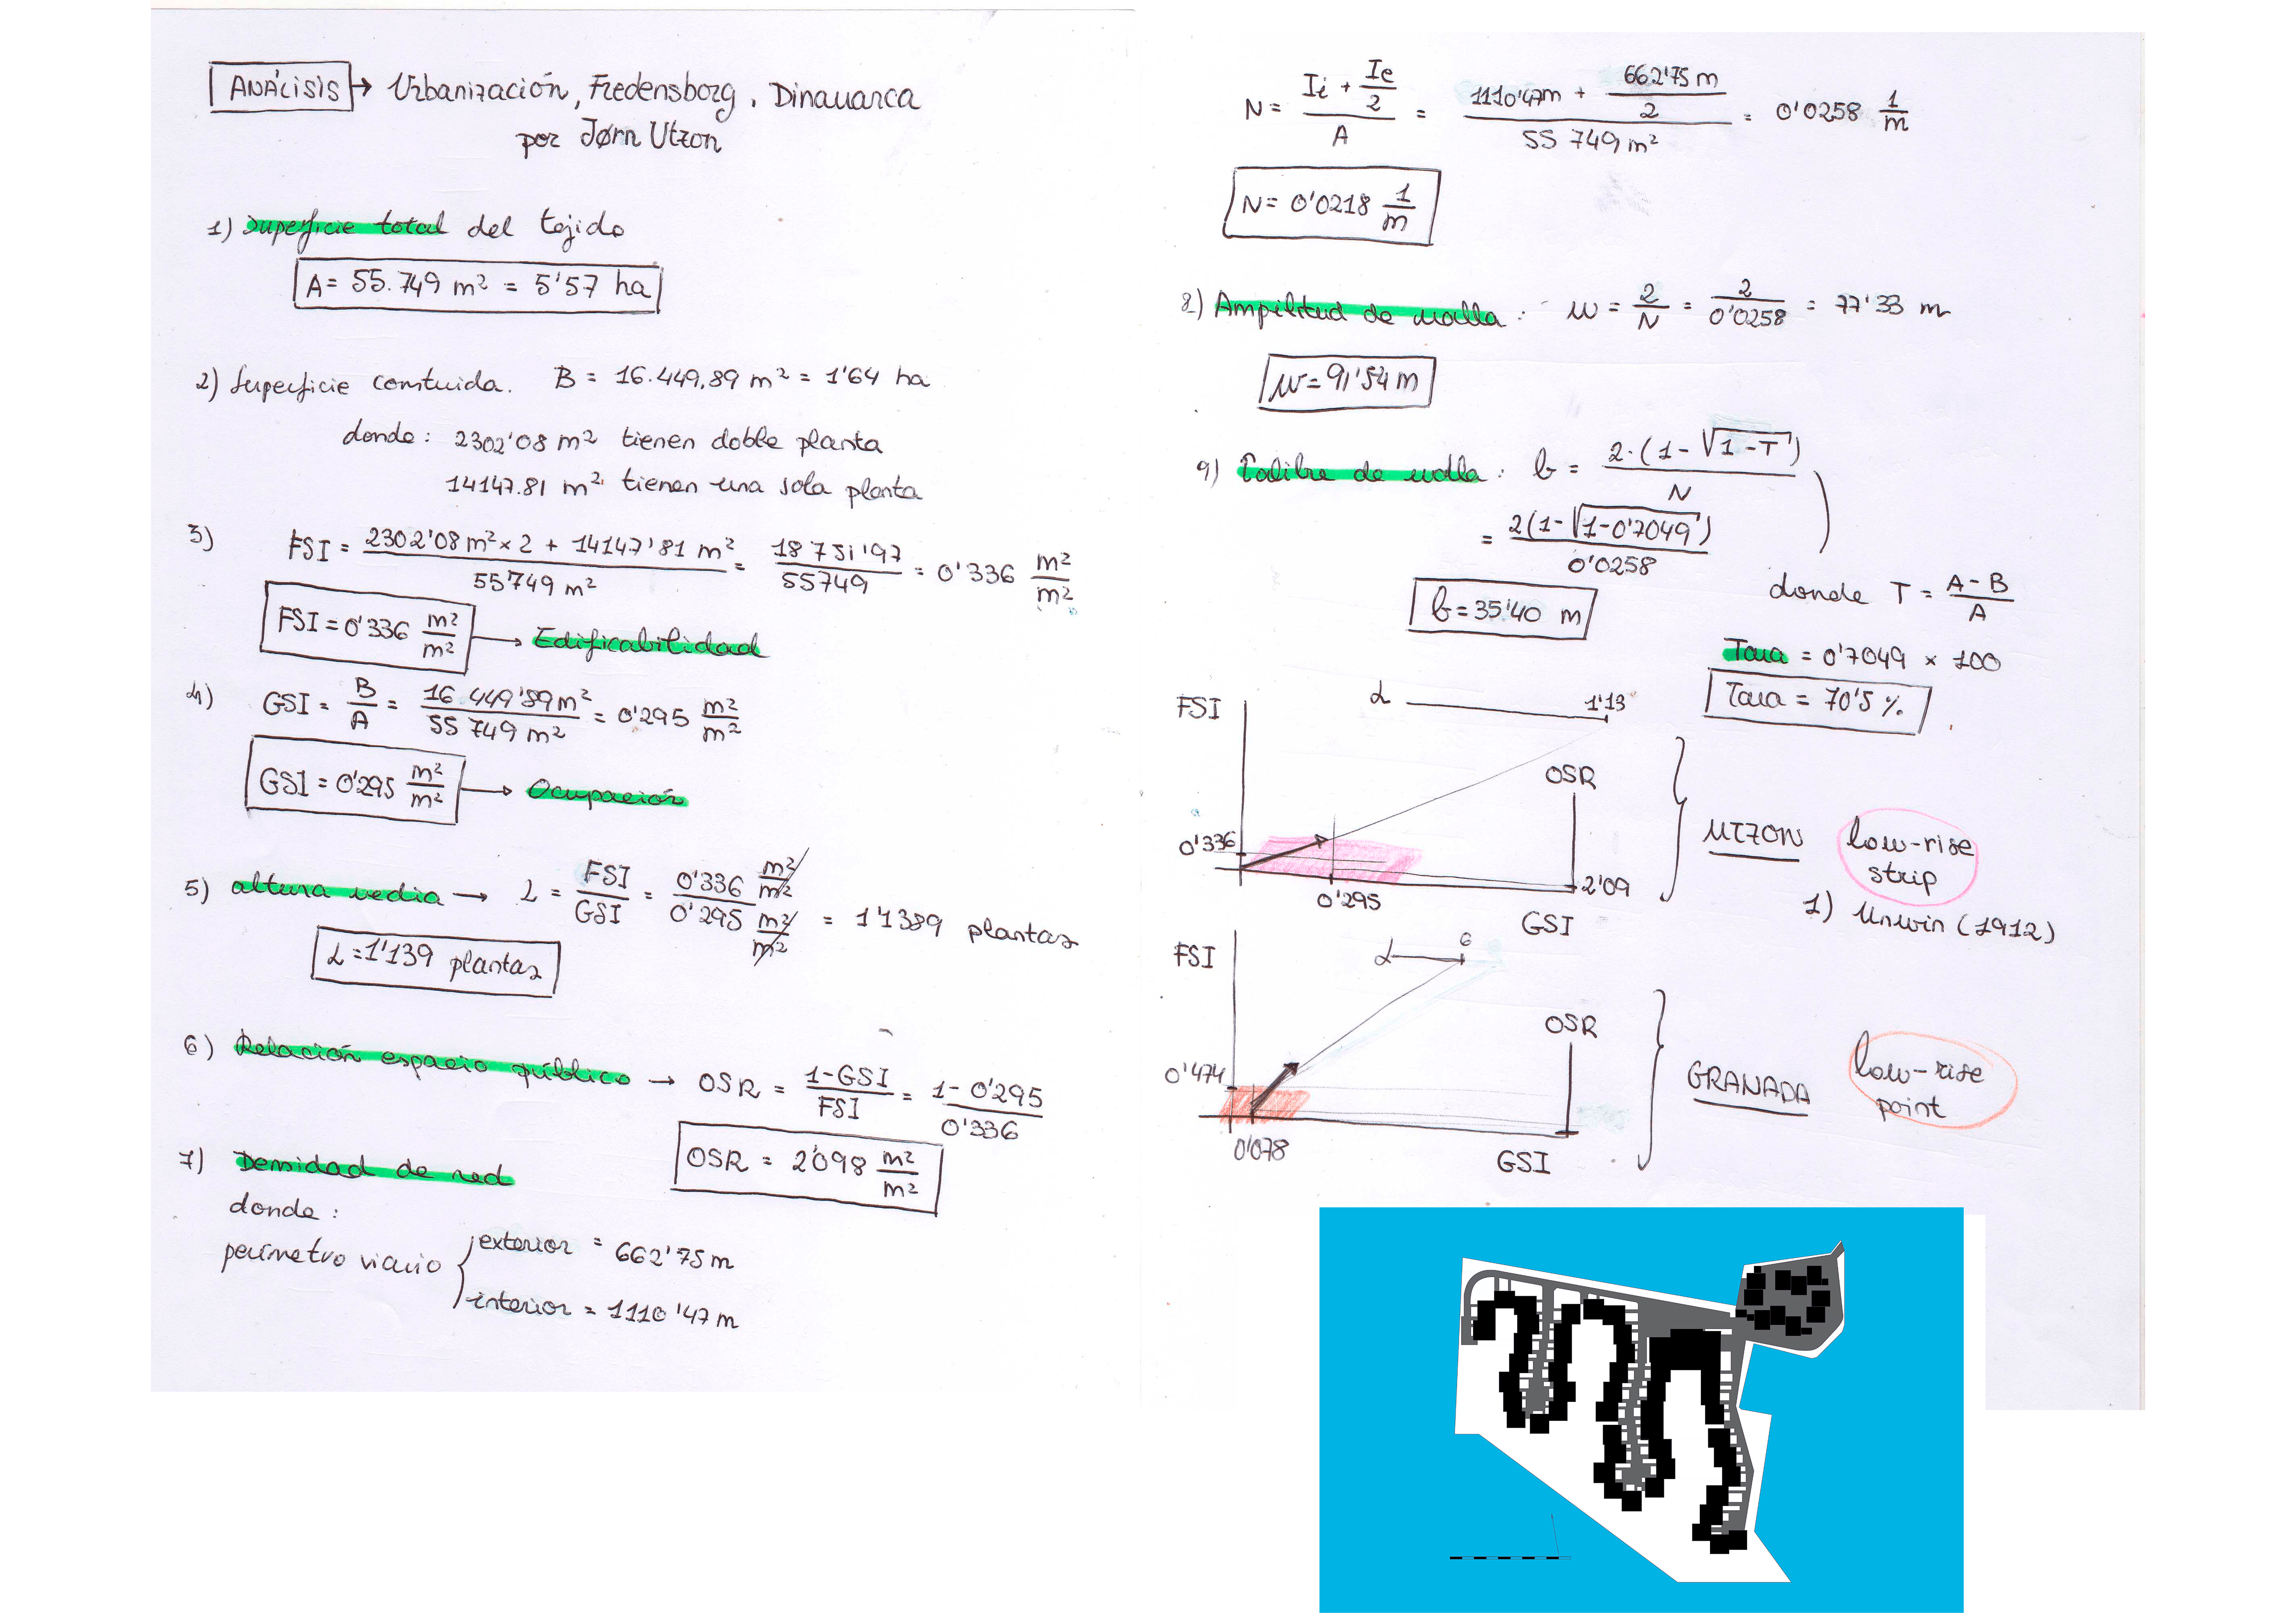 ANÁLISIS → Urbanización, Fredensborg, Dinamarca
por Jørn Utzon
1) Superficie total del tejido
A = 55.749 m² = 5'57 ha
2) Superficie construida. B = 16.449,89 m² = 1'64 ha
donde: 2302'08 m² tienen doble planta
14147.81 m² tienen una sola planta
3) FSI = (2302'08 m² x 2 + 14147'81 m²) / 55749 m² = 18751'97 / 55749 = 0'336 m²/m²
FSI = 0'336 m²/m² → Edificabilidad
4) GSI = B/A = 16.449'89 m² / 55 749 m² = 0'295 m²/m²
GSI = 0'295 m²/m² → Ocupación
5) altura media → L = FSI/GSI = 0'336 m²/m² / 0'295 m²/m² = 1'1389 plantas
L = 1'139 plantas
6) Relación espacio público → OSR = (1-GSI)/FSI = (1 - 0'295)/0'336
OSR = 2'098 m²/m²
7) Densidad de red
donde:
perímetro viario { exterior = 662'75 m
interior = 1110'47 m
N = (Ii + Ie/2) / A = (1110'47m + 662'75 m/2) / 55 749 m² = 0'0258 1/m
N = 0'0218 1/m
8) Ampilitud de malla: w = 2/N = 2/0'0258 = 77'33 m
w = 91'54 m
9) Calibre de malla: b = 2·(1-√(1-T)) / N
= 2(1-√(1-0'7049)) / 0'0258
b = 35'40 m
donde T = (A-B)/A
Tara = 0'7049 x 100
Tara = 70'5 %
FSI L 1'13
OSR
0'336
2'09
0'295
GSI
UTZON low-rise
strip
1) Unwin (1912)
FSI L 6
OSR
0'474
0'078 GSI
GRANADA low-rise
point